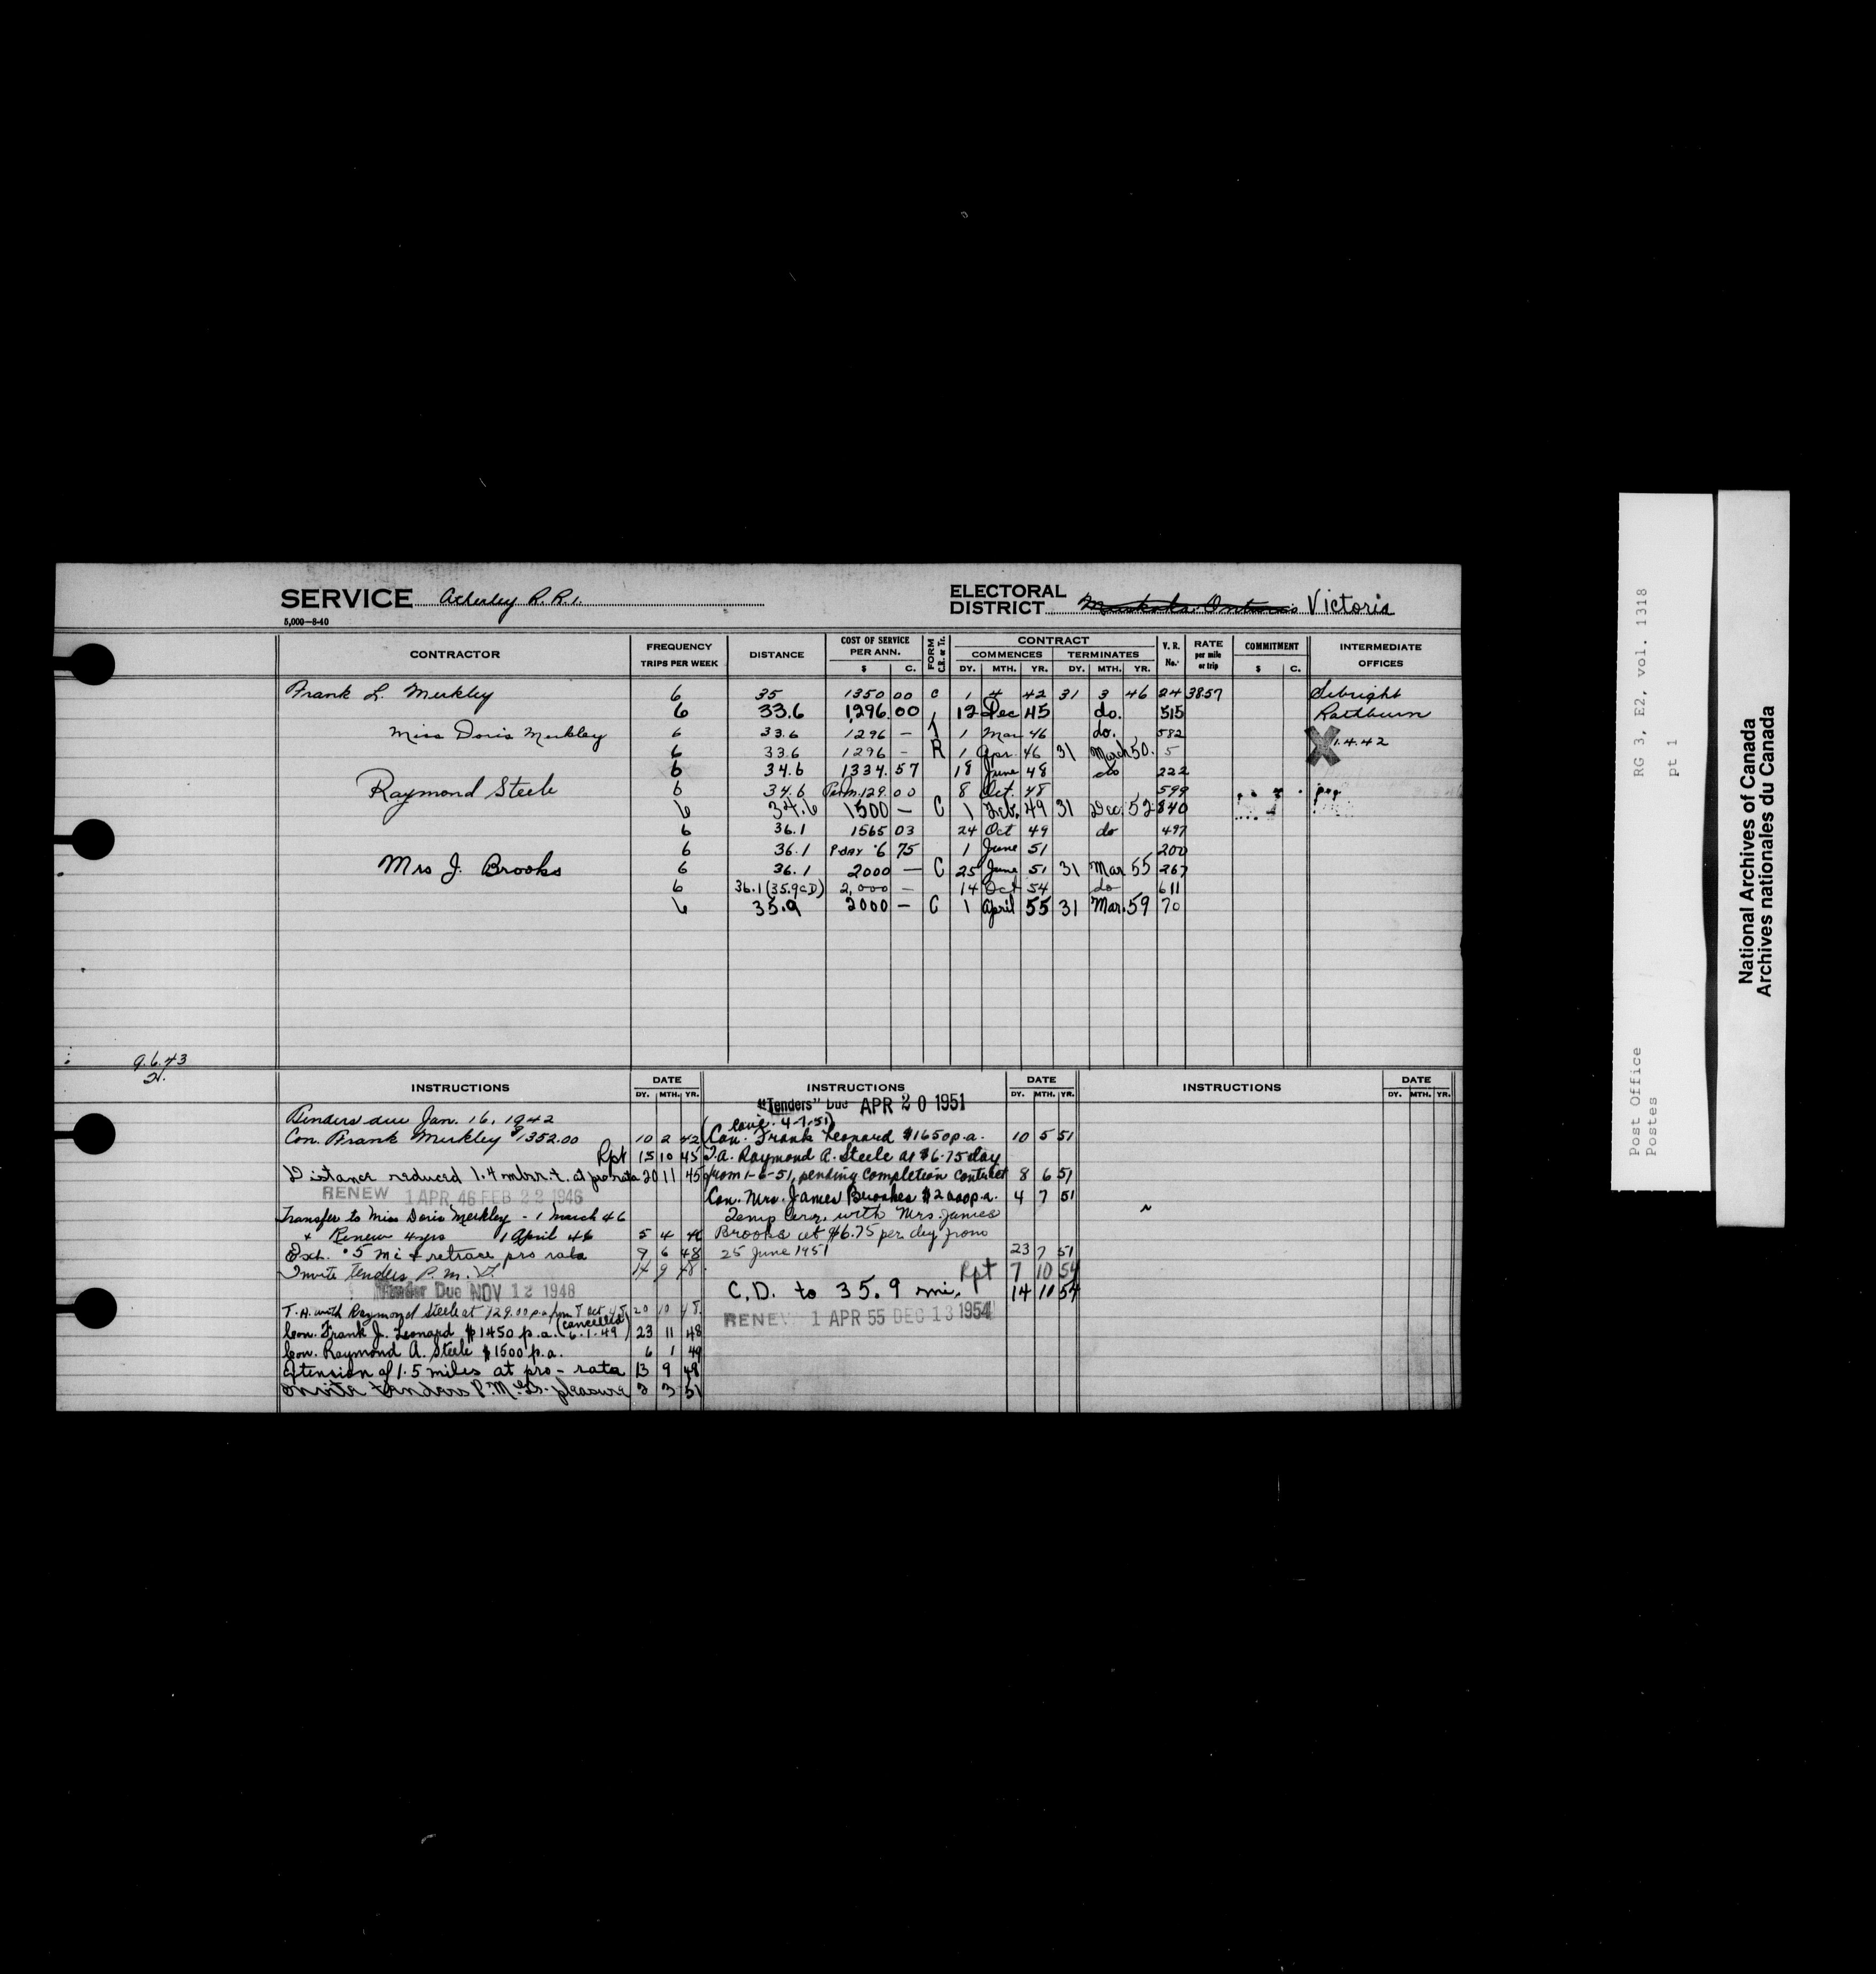 SERVICE Atherley R.R.1. ELECTORAL DISTRICT Muskoka Ontario Victoria
5,000—8-40
CONTRACTOR FREQUENCY TRIPS PER WEEK DISTANCE COST OF SERVICE PER ANN. $ C. FORM C.R. or T. CONTRACT COMMENCES DY. MTH. YR. TERMINATES DY. MTH. YR. V.R. No. RATE per mile or trip COMMITMENT $ C. INTERMEDIATE OFFICES
Frank L. Merkley 6 35 1350 00 C 1 4 42 31 3 46 24 3857 Sebright
6 33.6 1296.00 12 Dec 45 do. 515 Rathburn
Miss Doris Merkley 6 33.6 1296 — T 1 Mar 46 do. 582
6 33.6 1296 - R 1 Apr. 46 31 March 50. 5 1.4.42
6 34.6 1334.57 18 June 48 do 222
Raymond Steele 6 34.6 129.00 8 Oct. 48 599
6 34.6 1500 — C 1 Feb. 49 31 Dec. 52 840
6 36.1 1565 03 24 Oct 49 do 497
6 36.1 P. DAY 6 75 1 June 51 200
Mrs J. Brooks 6 36.1 2000 — C 25 June 51 31 Mar 55 267
6 36.1 (35.9 CD) 2,000 — 14 Oct 54 do 611
6 35.9 2000 — C 1 April 55 31 Mar. 59 70
9.6.43
INSTRUCTIONS DATE DY. MTH. YR. INSTRUCTIONS DATE DY. MTH. YR. INSTRUCTIONS DATE DY. MTH. YR.
Tenders due Jan. 16, 1942
Con. Frank Merkley $1352.00 10 2 42
Rpt 15 10 45
Distance reduced 1.4 m. r.t. at pro rata 20 11 45
RENEW 1 APR. 46 FEB 22 1946
Transfer to Miss Doris Merkley - 1 March 46
+ Renew 4 yrs 1 April 46 5 4 46
Ext. .5 mi & retrace pro rata 9 6 48
Invite tenders P.M. 14 9 48
Tender Due NOV 12 1948
T.A. with Raymond Steele at 129.00 p.a. from 8 Oct. 48 20 10 48
Con. Frank J. Leonard $1450 p.a. (cancelled 6.1.49) 23 11 48
Con. Raymond A. Steele $1500 p.a. 6 1 49
Extension of 1.5 miles at pro-rata 13 9 49
Invite tenders P.M.G's. pleasure 2 3 51
"Tenders" Due APR 20 1951
Con. Frank Leonard $1650 p.a. 10 5 51
T.A. Raymond A. Steele at $6.75 day
from 1-6-51, pending completion contract 8 6 51
Con. Mrs. James Brookes $2000 p.a. 4 7 51
Temp arr. with Mrs. James
Brooks at $6.75 per day from
25 June 1951 23 7 51
Rpt 7 10 54
C.D. to 35.9 mi. 14 10 54
RENEW 1 APR 55 DEC 13 1954
RG 3, E2, vol. 1318
pt 1
Post Office
Postes
National Archives of Canada
Archives nationales du Canada